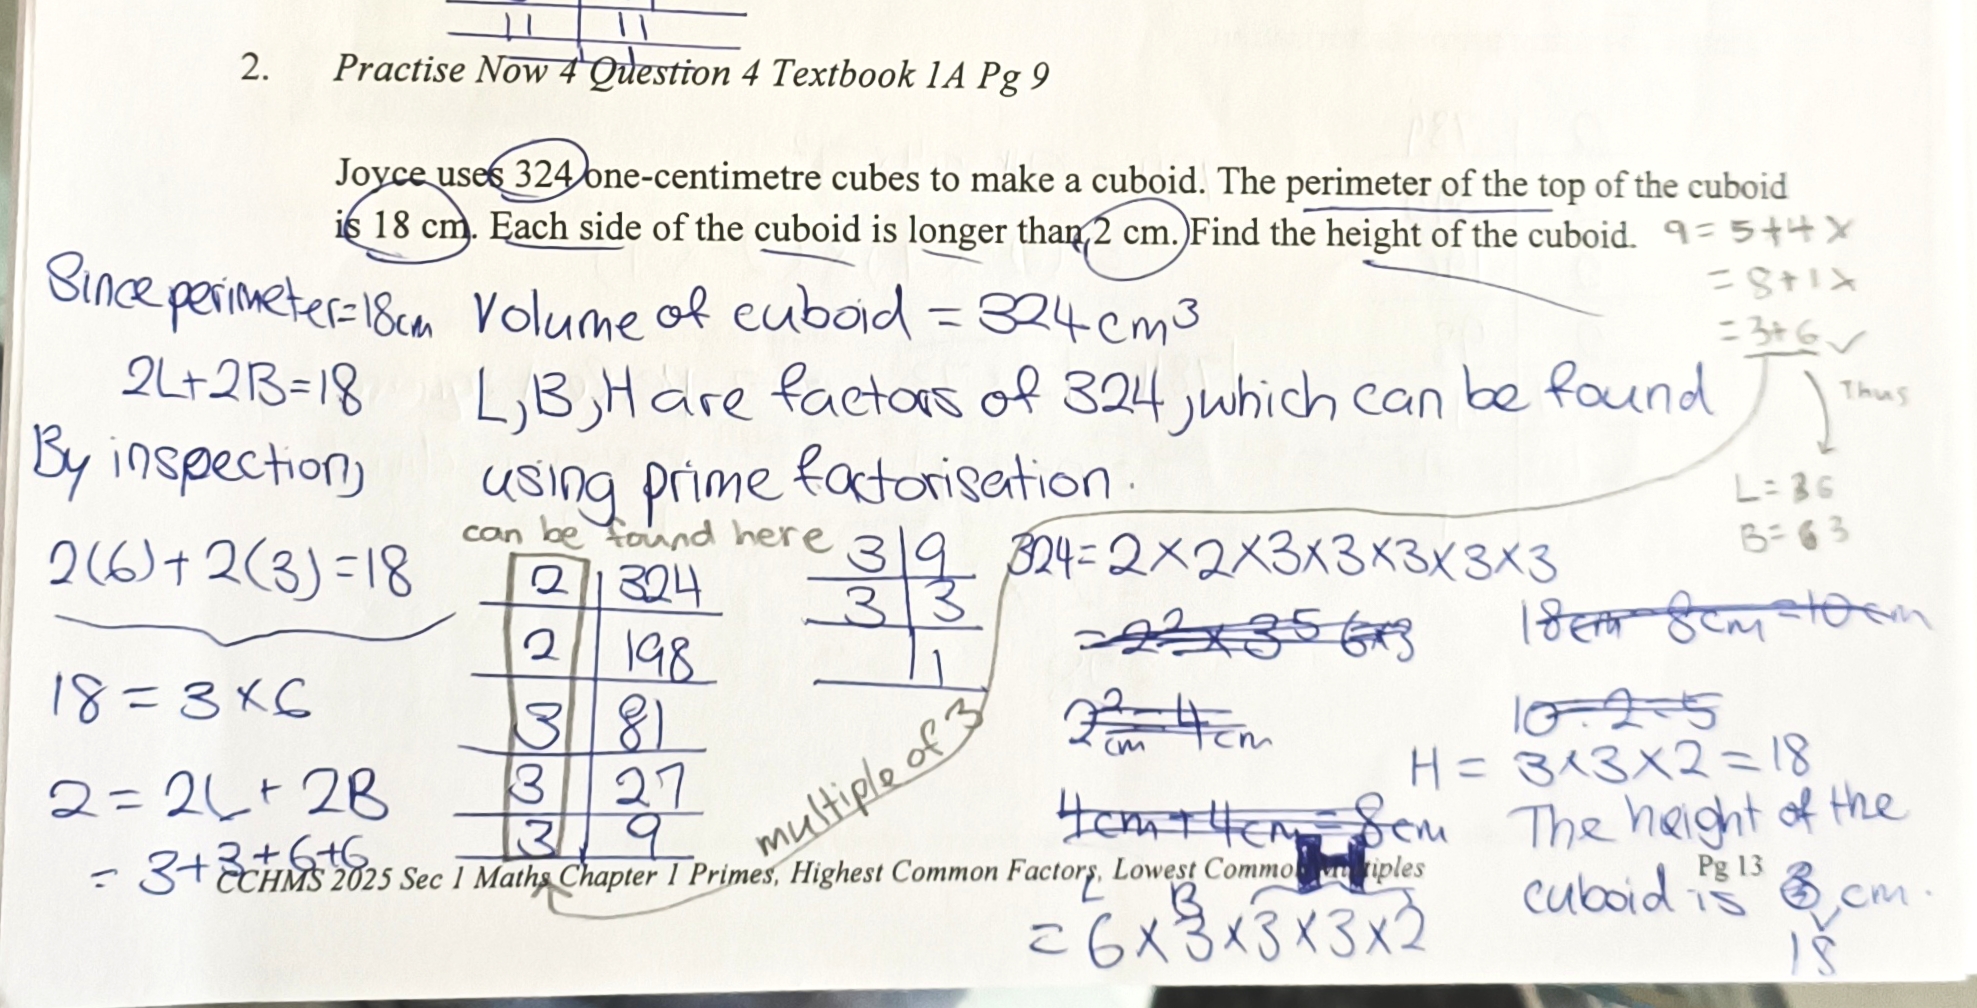 11 11
2. Practise Now 4 Question 4 Textbook 1A Pg 9
Joyce uses 324 one-centimetre cubes to make a cuboid. The perimeter of the top of the cuboid
is 18 cm. Each side of the cuboid is longer than 2 cm. Find the height of the cuboid.
9 = 5+4 X
= 8+1 X
= 3+6 ✓
Thus
L = 36
B = 63
Since perimeter=18cm
2L+2B=18
By inspection,
2(6)+2(3)=18
18 = 3×6
2 = 2L + 2B
= 3+3+6+6
Volume of cuboid = 324cm³
L,B,H are factors of 324, which can be found
using prime factorisation.
can be found here
2 | 324
2 | 198
3 | 81
3 | 27
3 | 9
3 | 9
3 | 3
1
multiple of 3
324=2×2×3×3×3×3×3
=2²×3⁵ 6×3
2²=4
cm cm
4cm+4cm=8cm
18cm-8cm=10cm
10÷2=5
H = 3×3×2=18
The height of the
cuboid is cm.
18
CCHMS 2025 Sec 1 Maths Chapter 1 Primes, Highest Common Factors, Lowest Common Multiples Pg 13
L B H
= 6×3×3×3×2